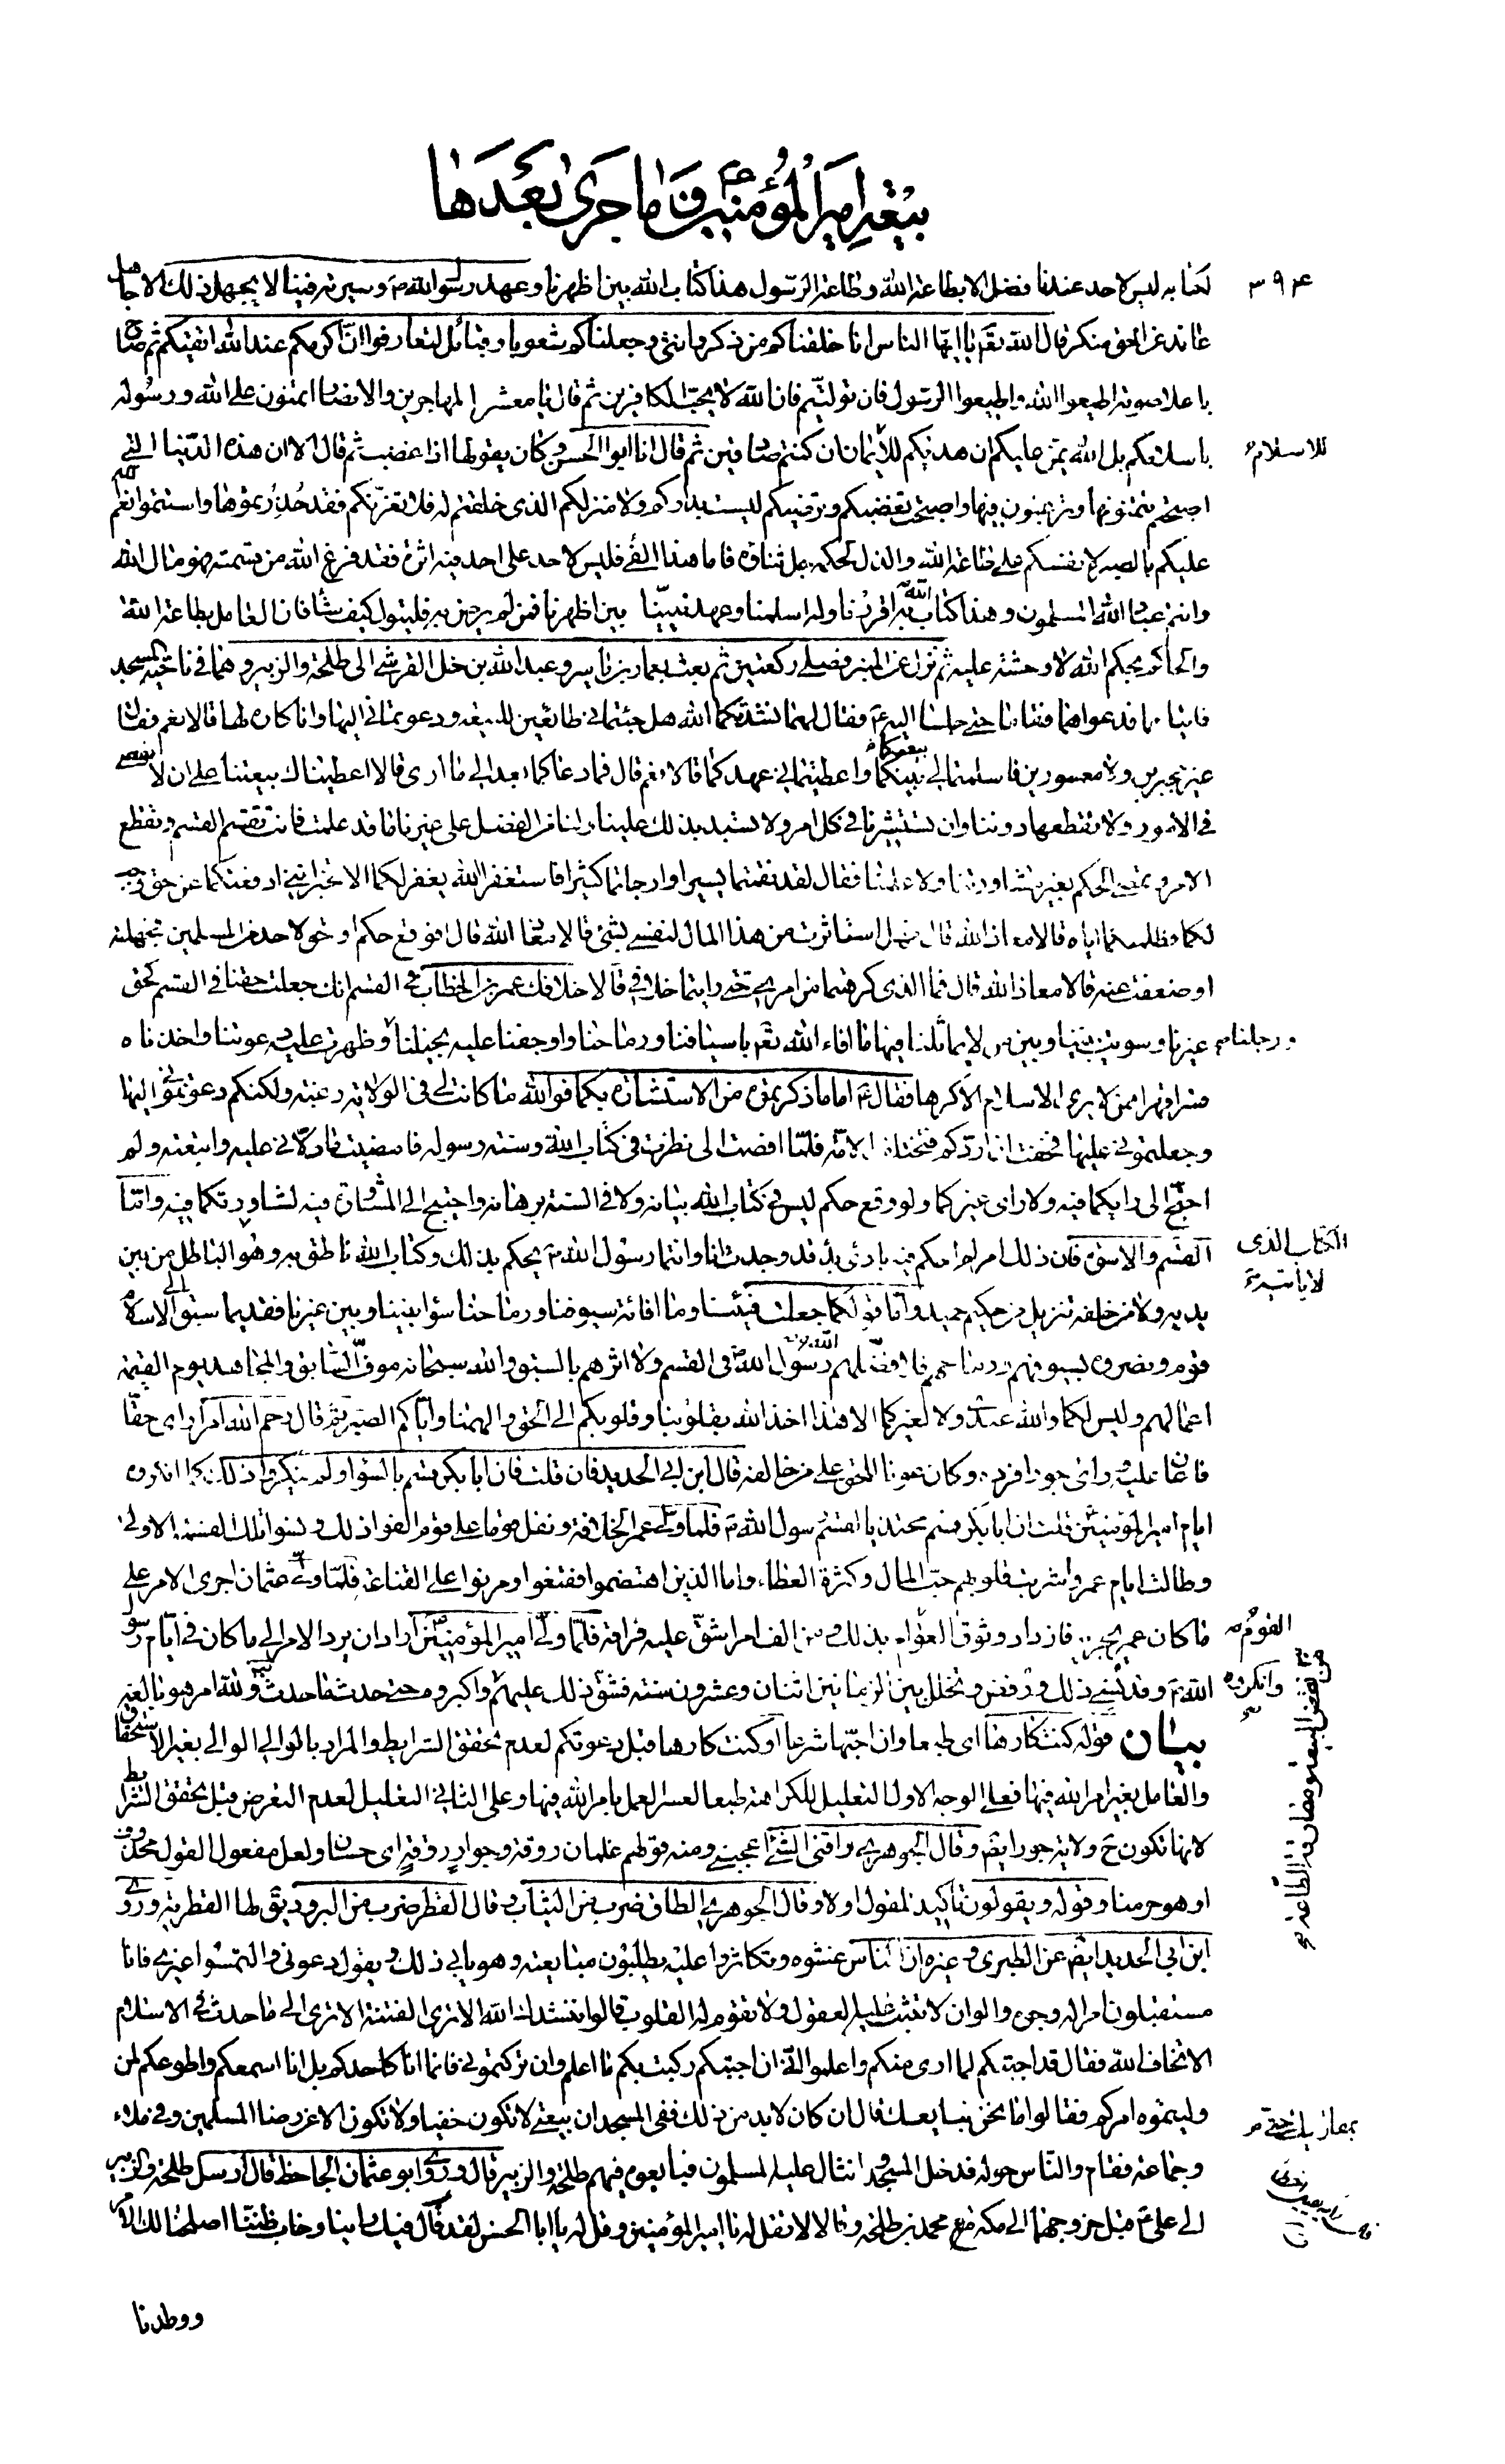 بيعة امير المؤمنين ع وما جرى بعدها
٣٩٤
لجنابه ليس لاحد عندنا فضل الا بطاعة الله وطاعة الرسول هذا كتاب الله بين اظهرنا وعهد رسول الله ص وسيرته فينا لا يجهل ذلك الا جاهل
عاند عن الحق منكر قال الله تعم يا ايها الناس انا خلقناكم من ذكر وانثى وجعلناكم شعوبا وقبائل لتعارفوا ان اكرمكم عند الله اتقيكم ثم صاح
با علا صوته اطيعوا الله واطيعوا الرسول فان توليتم فان الله لا يحب الكافرين ثم قال يا معشر المهاجرين والانصار اتمنون على الله ورسوله
باسلامكم بل الله يمن عليكم ان هديكم للايمان ان كنتم صادقين ثم قال انا ابو الحسن وكان يقولها اذا غضب ثم قال الا ان هذه الدنيا التي
للاسلام
اصبحتم تتمنونها وترغبون فيها واصبحت تغضبكم وترضيكم ليست بداركم ولا منزلكم الذي خلقتم له فلا تغرنكم فقد حذرتموها واستتموا نعم الله
عليكم بالصبر لانفسكم على طاعة الله والذل لحكمه جل ثناؤه فاما هذا الفئ فليس لاحد على احد فيه اثرة فقد فرغ الله من قسمته فهو مال الله
وانتم عباد الله المسلمون وهذا كتاب الله به اقررنا وله اسلمنا وعهد نبينا بين اظهرنا فمن لم يرض به فليتول كيف شاء فان العامل بطاعة الله
والحاكم بحكم الله لا وحشة عليه ثم نزل عن المنبر فصلى ركعتين ثم بعث بعمار بن ياسر وعبد الله بن خل القرشي الى طلحة والزبير وهما في ناحية المسجد
فاتياهما فدعواهما فقاما حتى جلسا اليه ع فقال لهما نشدتكما الله هل جئتماني طائعين للبيعة ودعوتماني اليها وانا كاره لها قالا نعم فقال
غير مجبرين ولا مقسورين فاسلمتما لي بيعتكما واعطيتماني عهدكما قالا نعم قال فما دعاكما بعد الى ما ارى قالا اعطيناك بيعتنا على ان لا تقضي
في الامور ولا تقطعها دوننا وان تستشيرنا في كل امر ولا تستبد بذلك علينا ولنا من الفضل على غيرنا ما قد علمت فانت تقسم القسم وتقطع
الامر وتمضي الحكم بغير مشاورتنا ولا علمنا فقال لقد نقمتما يسيرا وارجاتما كثيرا فاستغفرا الله يغفر لكما الا تخبرانني ادفعتكما عن حق وجب
لكما فظلمتكما اياه قالا معاذ الله قال فهل استاثرت من هذا المال لنفسي بشئ قالا معاذ الله قال افوقع حكم او حق لاحد من المسلمين فجهلته
او ضعفت عنه قالا معاذ الله قال فما الذي كرهتما من امري حتى رايتما خلافي قالا خلافك عمر بن الخطاب في القسم انك جعلت حقنا في القسم كحق
غيرنا وسويت بيننا وبين من لا يماثلنا فيما افاء الله تعم باسيافنا ورماحنا واوجفنا عليه بخيلنا وظهرت عليه دعوتنا واخذناه
ورجلنا
قسرا قهرا ممن لا يرى الاسلام الا كرها فقال ع اما ما ذكرتموه من الاستشارة بكما فوالله ما كانت لي في الولاية رغبة ولكنكم دعوتموني اليها
وجعلتموني عليها فخفت ان اردكم فتختلف الامة فلما افضت الي نظرت في كتاب الله وسنة رسوله فامضيت ما دلاني عليه واتبعته ولم
احتج الى رايكما فيه ولا راى غيركما ولو وقع حكم ليس في كتاب الله بيانه ولا في السنة برهانه واحتيج الى المشاورة فيه لشاورتكما فيه واما
القسم والاسوة فان ذلك امر لم احكم فيه بادئ بدء قد وجدت انا وانتما رسول الله ص يحكم بذلك وكتاب الله ناطق به وهو الباطل من بين
الكتاب الذي
لا ياتيه
يديه ولا من خلفه تنزيل من حكيم حميد واما قولكما جعلت فيئنا وما افائته سيوفنا ورماحنا سواء بيننا وبين غيرنا فقديما سبق الى الاسلام
قوم ونصروه بسيوفهم ورماحهم فما فضلهم رسول الله ص في القسم ولا اثرهم بالسبق والله سبحانه موف السابق والمجاهد يوم القيمة
اعمالهم وليس لكما والله عندي ولا لغيركما الا هذا اخذ الله بقلوبنا وقلوبكم الى الحق والهمنا واياكم الصبر ثم قال رحم الله امرأ راى حقا
فاعان عليه وراى جورا فرده وكان عونا للحق على من خالفه قال ابن ابي الحديد فان قلت فان ابا بكر قسم بالسواء ولم ينكروا ذلك كما انكروه
ايام امير المؤمنين ع قلت ان ابا بكر قسم محتذيا لقسم رسول الله ص فلما ولى عمر الخلافة وفضل قوما على قوم الفوا ذلك ونسوا تلك القسمة الاولى
وطالت ايام عمر واشربت قلوبهم حب المال وكثرة العطاء واما الذين اهتضموا فقنعوا ومرنوا على القناعة فلما ولى عثمان اجرى الامر على
ما كان عمر يجريه فازداد وثوق العوام بذلك ومن الف امرا شق عليه فراقه فلما ولى امير المؤمنين ع اراد ان يرد الامر الى ما كان في ايام رسول
القوم
الله ص وقد نسي ذلك ورفض وتخلل بين الزمانين اثنان وعشرون سنة فشق ذلك عليهم واكبروه حتى حدث ما حدث ولله امر هو بالغه
وانكروه
من نقض البيعة ومفارقة الطاعة
بيان قوله كنت كارها اى طبعا وان احبها شرعا او كنت كارها قبل دعوتكم لعدم تحقق الشرايط والمراد بالوالي الوالي بغير الاستحقاق
والعامل بغير امر الله فيها فعلى الوجه الاول التعليل للكراهة طبعا لعسر العمل بامر الله فيها وعلى الثاني التعليل لعدم التعرض قبل تحقق الشرايط
لانها تكون ح ولاية جور ايضم وقال الجوهري راقني الشئ اعجبني ومنه قولهم غلمان روقة وجوار روقة اى حسان ولعل مفعول القول محذوف
او هو حرمنا وقوله ويقولون تاكيد للقول اولا وقال الجوهري الطاق ضرب من الثياب وقال القطر ضرب من البرود يق لها القطرية وروى
ابن ابي الحديد ايضم عن الطبري وغيره ان الناس غشوه وتكاثروا عليه يطلبون مبايعته وهو يابى ذلك ويقول دعوني والتمسوا غيري فانا
مستقبلون امرا له وجوه والوان لا تثبت عليه العقول ولا تقوم له القلوب قالوا ننشدك الله الا ترى الفتنة الا ترى الى ما حدث في الاسلام
الا تخاف الله فقال قد اجبتكم لما ارى منكم واعلموا اني ان اجبتكم ركبت بكم ما اعلم وان تركتموني فانما انا كاحدكم بل انا اسمعكم واطوعكم لمن
وليتموه امركم فقالوا ما نحن بمفارقيك حتى نبايعك قال ان كان لا بد من ذلك ففي المسجد ان بيعتي لا تكون خفيا ولا تكون الا عن رضا المسلمين وفي ملاء
وجماعة فقام والناس حوله فدخل المسجد وانثال عليه المسلمون فبايعوه فيهم طلحة والزبير قال وروى ابو عثمان الجاحظ قال ارسل طلحة والزبير
الى علي ع قبل خروجهما الى مكة مع محمد بن طلحة وقالا لا تقل له يا امير المؤمنين وقل له يا ابا الحسن لقد فال فيك راينا وخاب ظننا اصلحنا لك الامر
ووطدنا